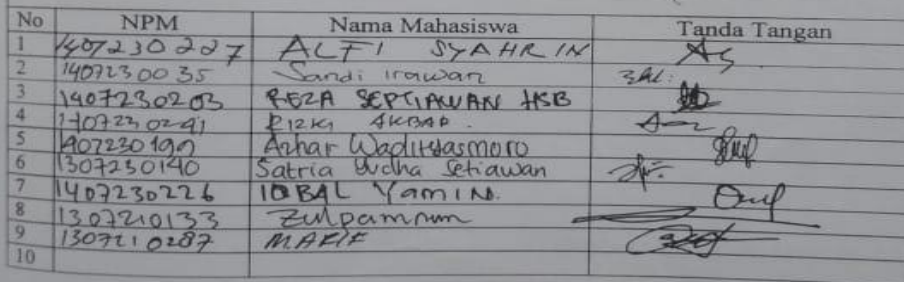 No NPM Nama Mahasiswa Tanda Tangan
1 1407230227 ALFI SYAHRIN
2 1407230035 Sandi irawan
3 1407230203 REZA SEPTIAWAN HSB
4 1707230291 RIZKI AKBAR
5 1407230199 Azhar
6 1307230140 Satria Yudha Setiawan
7 1407230226 IQBAL YAMIN.
8 1307210133
9 1307210287 MAFIF
10